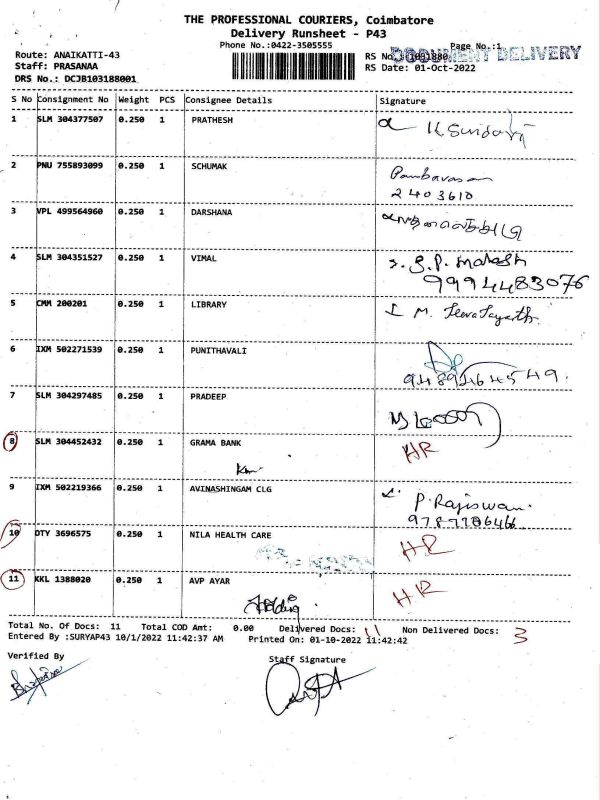 THE PROFESSIONAL COURIERS, Coimbatore
Delivery Runsheet - P43
Phone No.:0422-3505555
Page No.:1
DOCUMENT DELIVERY
Route: ANAIKATTI-43
RS No.:
Staff: PRASANAA
RS Date: 01-Oct-2022
DRS No.: DCJB103188001
S No Consignment No Weight PCS Consignee Details Signature
1 SLM 304377507 0.250 1 PRATHESH
2 PNU 755893099 0.250 1 SCHUMAK
2403610
3 VPL 499564960 0.250 1 DARSHANA
4 SLM 304351527 0.250 1 VIMAL
9994483076
5 CMM 200201 0.250 1 LIBRARY
6 IXM 502271539 0.250 1 PUNITHAVALI
9489464549.
7 SLM 304297485 0.250 1 PRADEEP
8 SLM 304452432 0.250 1 GRAMA BANK HR
9 IXM 502219366 0.250 1 AVINASHINGAM CLG
P. Rajiswari
10 DTY 3696575 0.250 1 NILA HEALTH CARE HR
11 KKL 1388020 0.250 1 AVP AYAR HR
Total No. Of Docs: 11 Total COD Amt: 0.00 Delivered Docs: 11 Non Delivered Docs: 3
Entered By :SURYAP43 10/1/2022 11:42:37 AM Printed On: 01-10-2022 11:42:42
Verified By Staff Signature